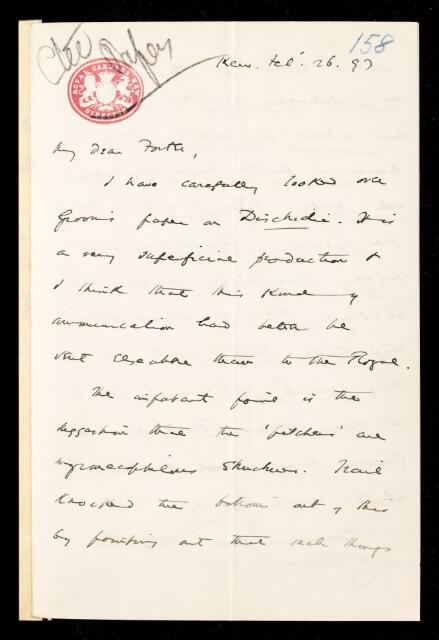 158
ROYAL GARDENS KEW
Kew. Feb. 26. 93
My dear Foster,
I have carefully looked over
Groom's paper on Dischidia. It is
a very superficial production &
I think that this kind of
communication had better be
sent elsewhere than to the Royal.
The important point is the
suggestion that the 'pitchers' are
myrmecophilous structures. Trail
knocked the bottom out of this
by pointing out that such things